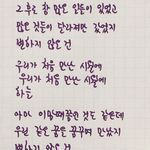 그 후로 참 많은 일들이 있었고
많은 것들이 달라져만 갔었지
변하지 않은 건
우리가 처음 만난 시절에
우리가 처음 만난 시절에
하늘
아마 이맘때쯤인 것 같은데
우린 같은 꿈을 꿈꾸며 만났지
변하지 않은 건